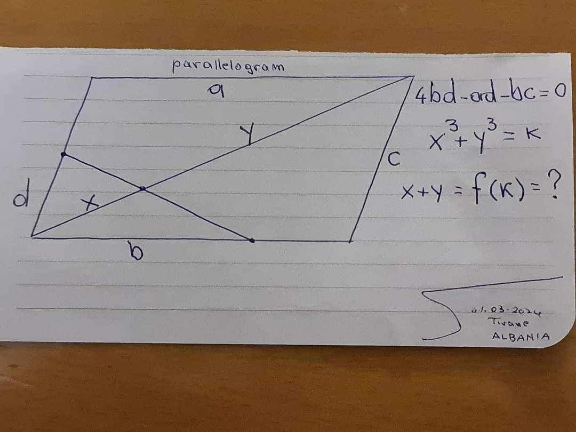 parallelogram
a
4bd-ad-bc=0
y
x³+y³=k
c
x+y=f(k)=?
d
x
b
01.03.2024
Tirane
ALBANIA